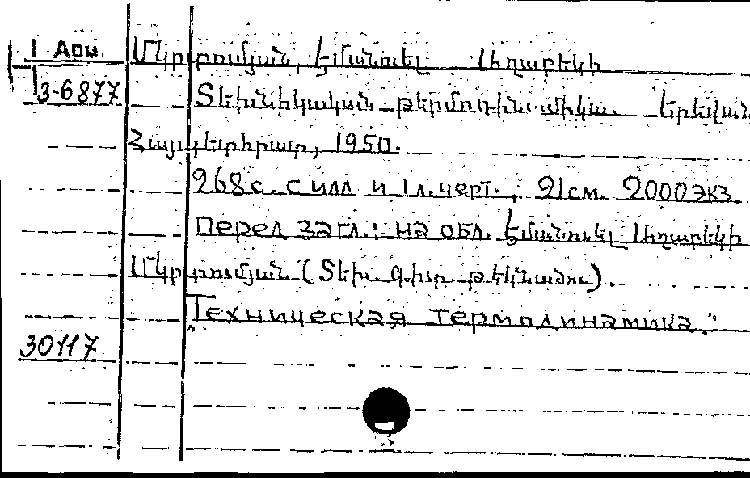 1 Арм. Մկրտումյան, Էմանուել Աղաբեկի
3-6877 Տեխնիկական թերմոդինամիկա. Երևան,
Հայպետհրատ, 1950.
268 с. с илл. и 1 л. черт.; 21 см. 2000 экз.
Перед загл.: на обл. Էմանուել Աղաբեկի
Մկրտումյան (Տեխ. գիտ. թեկնածու).
"Техническая термодинамика."
30117